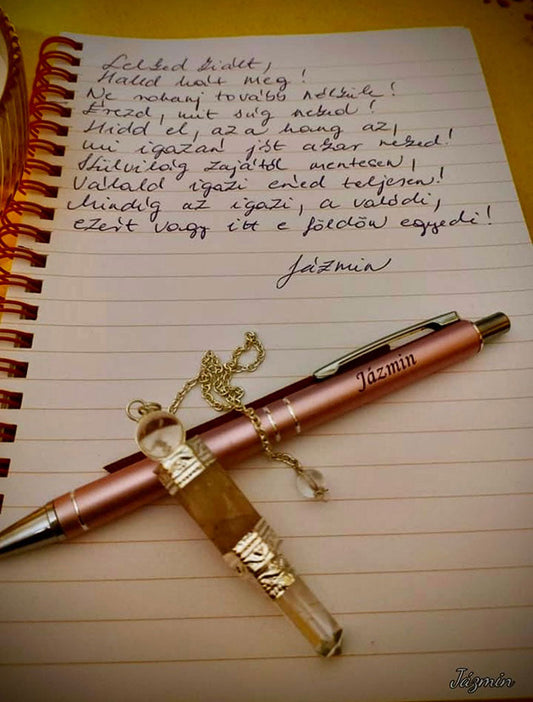 Lelked kiált,
Halld hát meg!
Ne rohanj tovább nélküle!
Érezd, mit súg neked!
Hidd el, az a hang az,
mi igazán jót akar neked!
Külvilág zajától mentesen,
Vállald igazi éned teljesen!
Mindig az igazi, a valódi,
ezért vagy itt e földön egyedi!
Jázmin
Jázmin
Jázmin